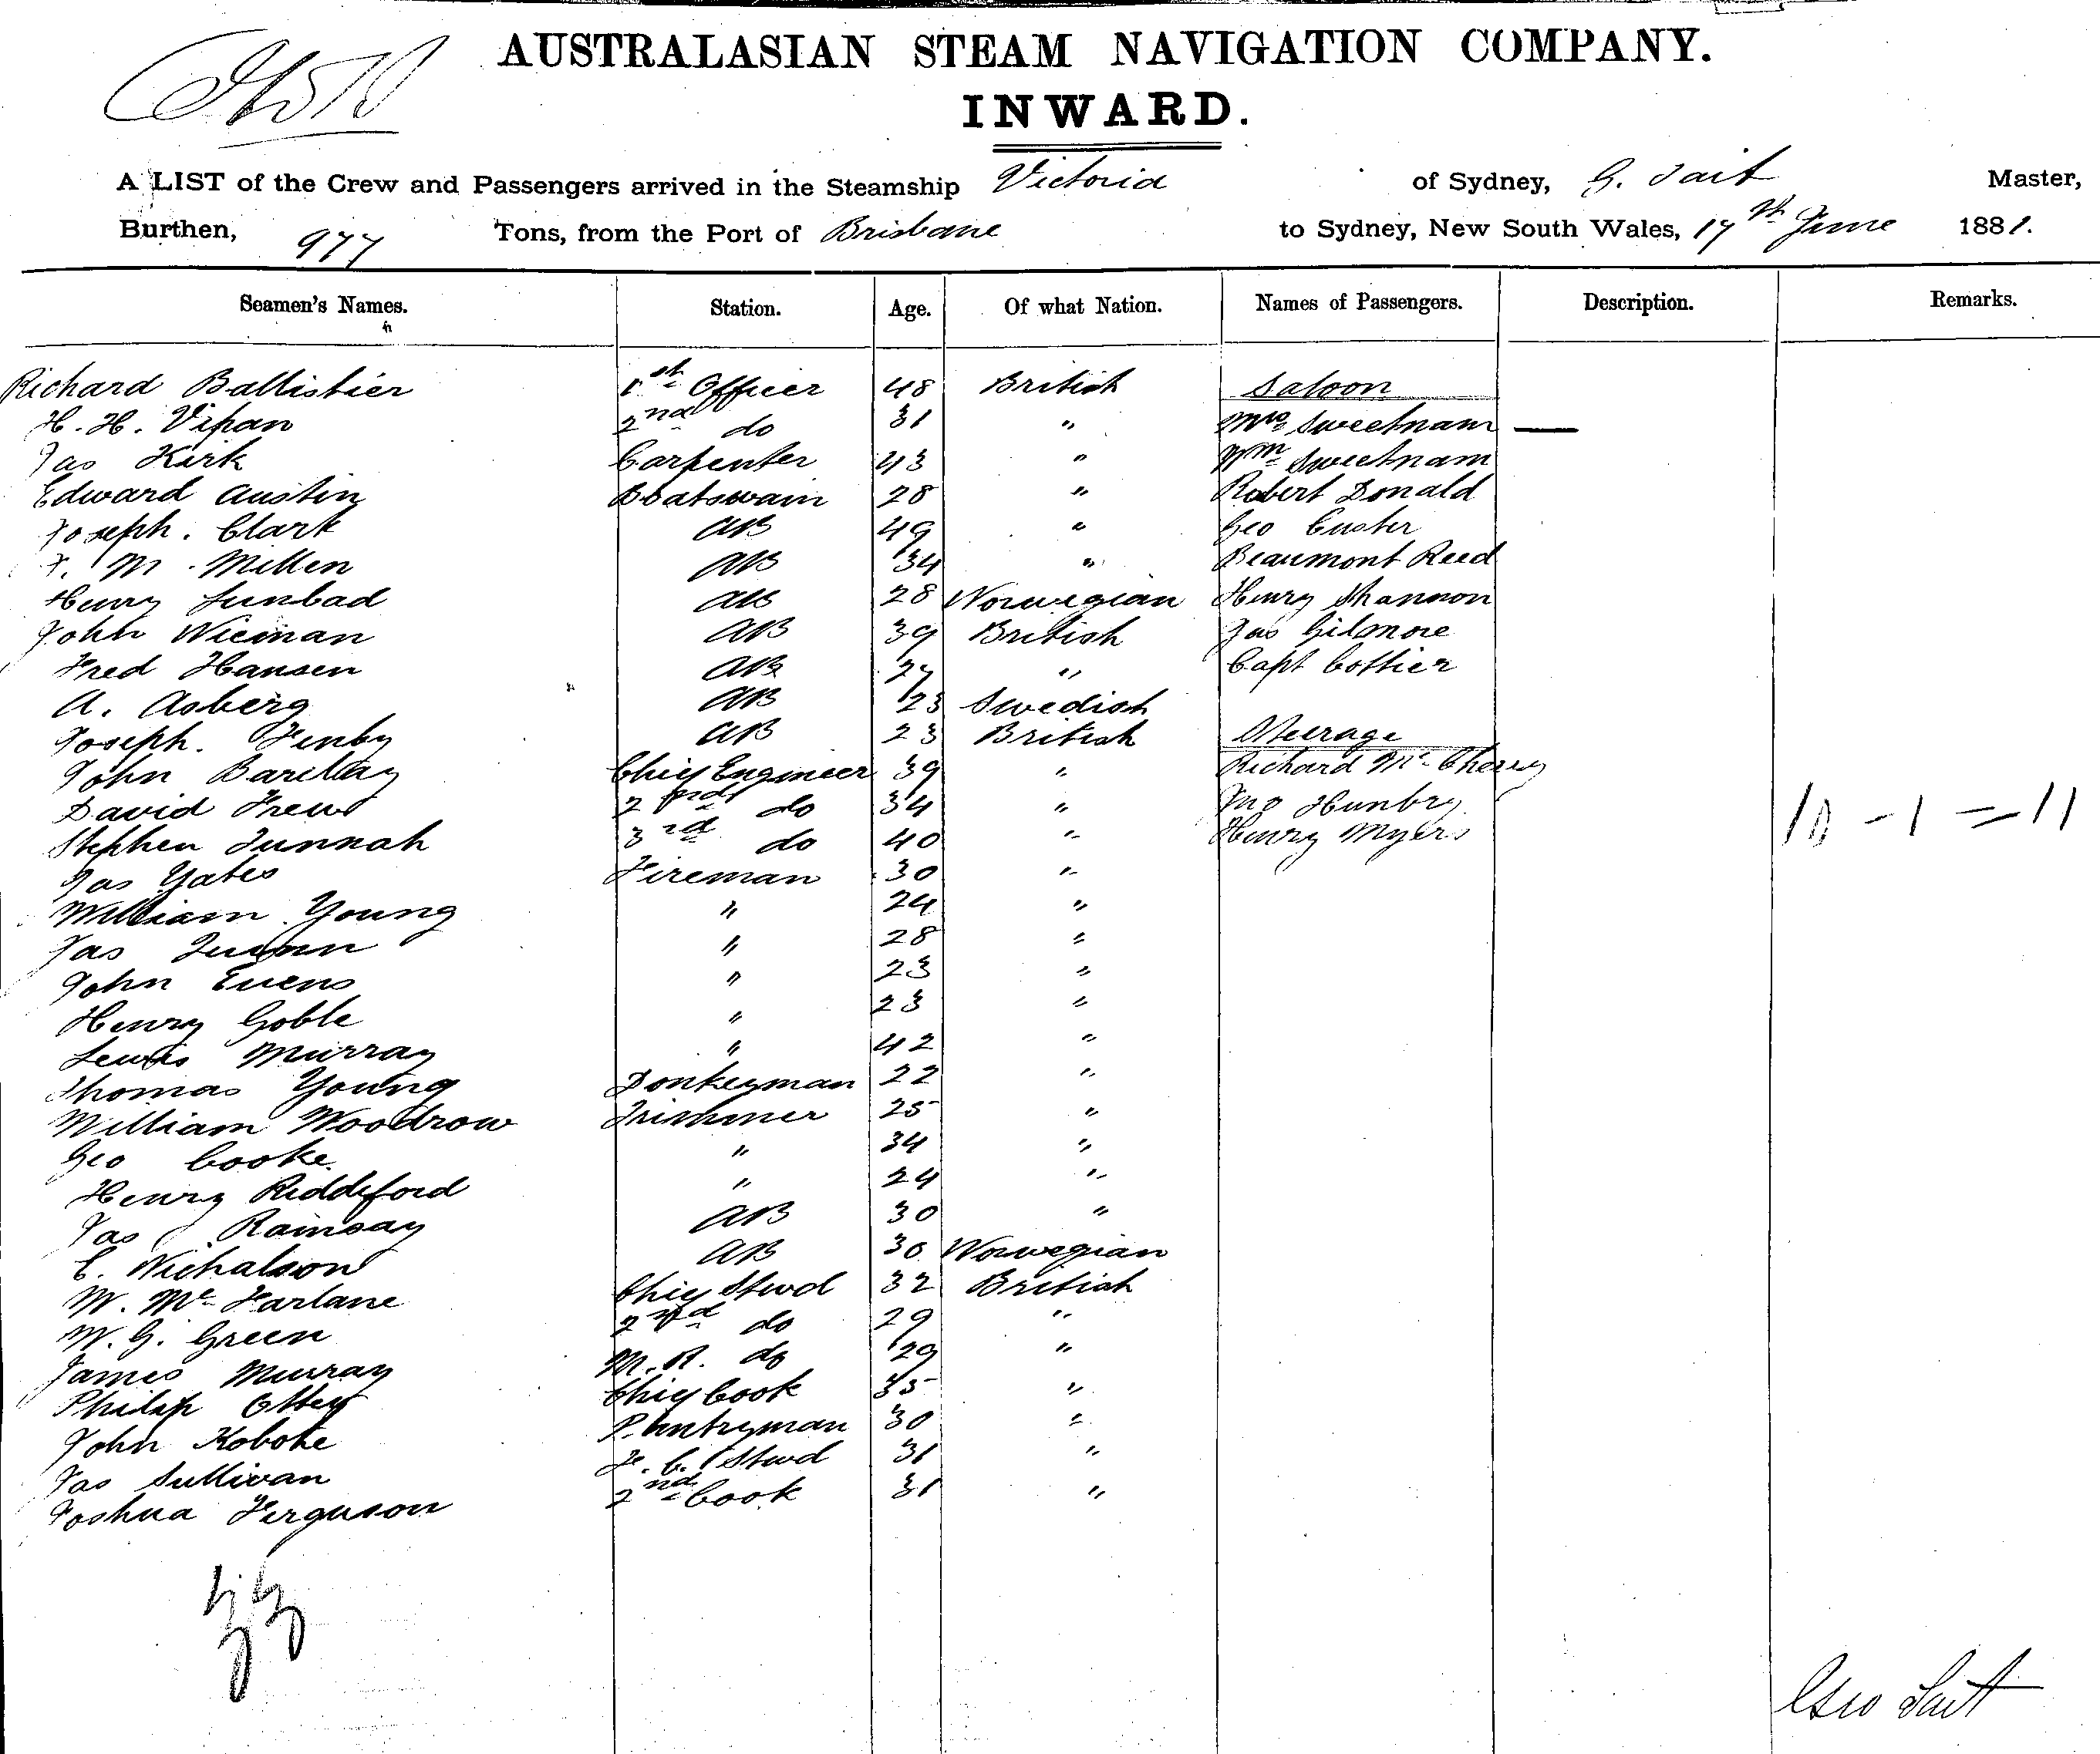 AUSTRALASIAN STEAM NAVIGATION COMPANY.
INWARD.
A LIST of the Crew and Passengers arrived in the Steamship Victoria of Sydney, G. Tait Master,
Burthen, 977 Tons, from the Port of Brisbane to Sydney, New South Wales, 17th June 1881.
Seamen's Names. Station. Age. Of what Nation. Names of Passengers. Description. Remarks.
Richard Ballistier 1st Officer 48 British Saloon
H. H. Vipan 2nd do 31 " Mrs Sweetnam —
Jas Kirk Carpenter 43 " Wm Sweetnam
Edward Austin Boatswain 28 " Robert Donald
Joseph. Clark AB 49 " Geo Custer
J. M. Millen AB 34 " Beaumont Reed
Henry Lunbad AB 28 Norwegian Henry Shannon
John Wieman AB 39 British Jas Gilmore
Fred Hansen AB 27 " Capt Cottier
A. Asberg AB 23 Swedish
Joseph. Fenby AB 23 British Steerage
John Barclay Chief Engineer 39 " Richard Mc Cherry
David Frew 2nd do 34 " Jno Hunbry
Stephen Tunnah 3rd do 40 " Henry Myers
Jas Yates Fireman 30 "
William Young " 24 "
Jas Quinn " 28 "
John Evens " 23 "
Henry Goble " 23 "
Lewis Murray " 42 "
Thomas Young Donkeyman 22 "
William Woodrow Trimmer 25 "
Geo Cooke " 34 "
Henry Riddiford " 24 "
Jas Ramsay AB 30 "
E. Nichalson AB 30 Norwegian
W. Mc Farlane Chief Stwd 32 British
W. G. Green 2nd do 29 "
James Murray M. R. do 29 "
Philip Ottey Chief Cook 35 "
John Koboke Pantryman 30 "
Jas Sullivan F. C. Stwd 31 "
Joshua Ferguson 2nd Cook 31 "
33
Geo Tait